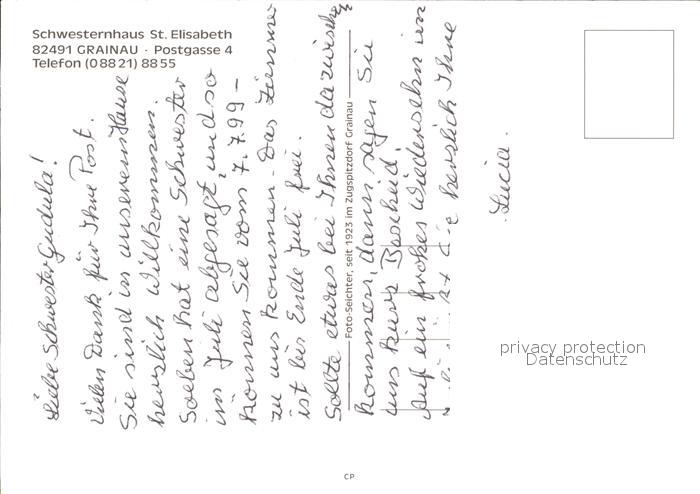 Schwesternhaus St. Elisabeth
82491 GRAINAU · Postgasse 4
Telefon (08821) 8855
Liebe Schwester Gudula!
Vielen Dank für Ihre Post.
Sie sind in unserem Hause
herzlich Willkommen.
Soeben hat eine Schwester
im Juli abgesagt, und so
können Sie vom 7.7.99 –
zu uns kommen. Das Zimmer
ist bis Ende Juli frei.
Sollte etwas bei Ihnen dazwischen
kommen, dann sagen Sie
uns kurz Bescheid.
Auf ein frohes Wiedersehn und
herzlich Ihre
Lucia.
Foto-Seichter, seit 1923 im Zugspitzdorf Grainau
privacy protection
Datenschutz
CP